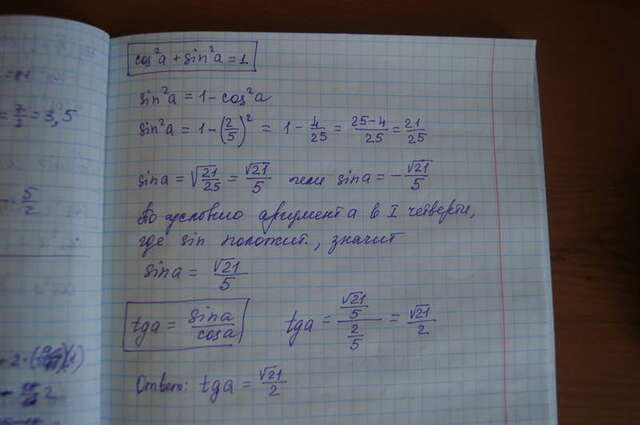 = 7/2 = 3,5
cos²a + sin²a = 1
sin²a = 1 - cos²a
sin²a = 1 - (2/5)² = 1 - 4/25 = (25-4)/25 = 21/25
sina = √(21/25) = √21/5 или sina = -√21/5
По условию аргумент a в I четверти,
где sin положит., значит
sina = √21/5
tga = sina/cosa tga = (√21/5)/(2/5) = √21/2
Ответ: tga = √21/2